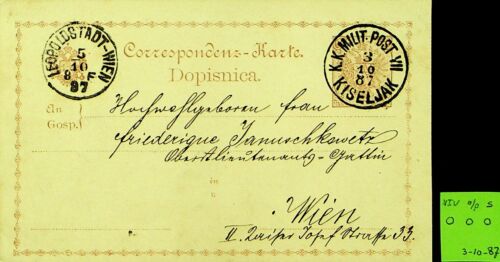 LEOPOLDSTADT-WIEN
5
10
8. F
87
Correspondenz-Karte.
Dopisnica.
K.K. MILIT. POST VII
3
10
87
KISELJAK
An
Gosp.
Hochwohlgeboren Frau
Friederique Januschkowetz
Oberstlieutenants-Gattin
in
u
Wien
II. Kaiser Josef Strasse 33.
S
0 0 0
3-10-87